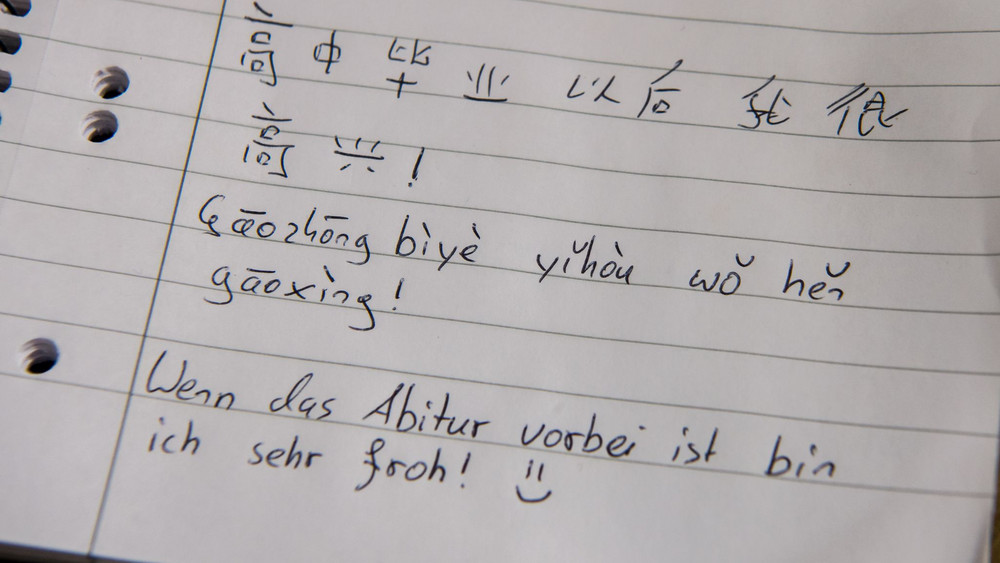 高中毕业 以后 我 很
高兴!
Gāozhōng bìyè yǐhòu wǒ hěn
gāoxìng!
Wenn das Abitur vorbei ist bin
ich sehr froh!